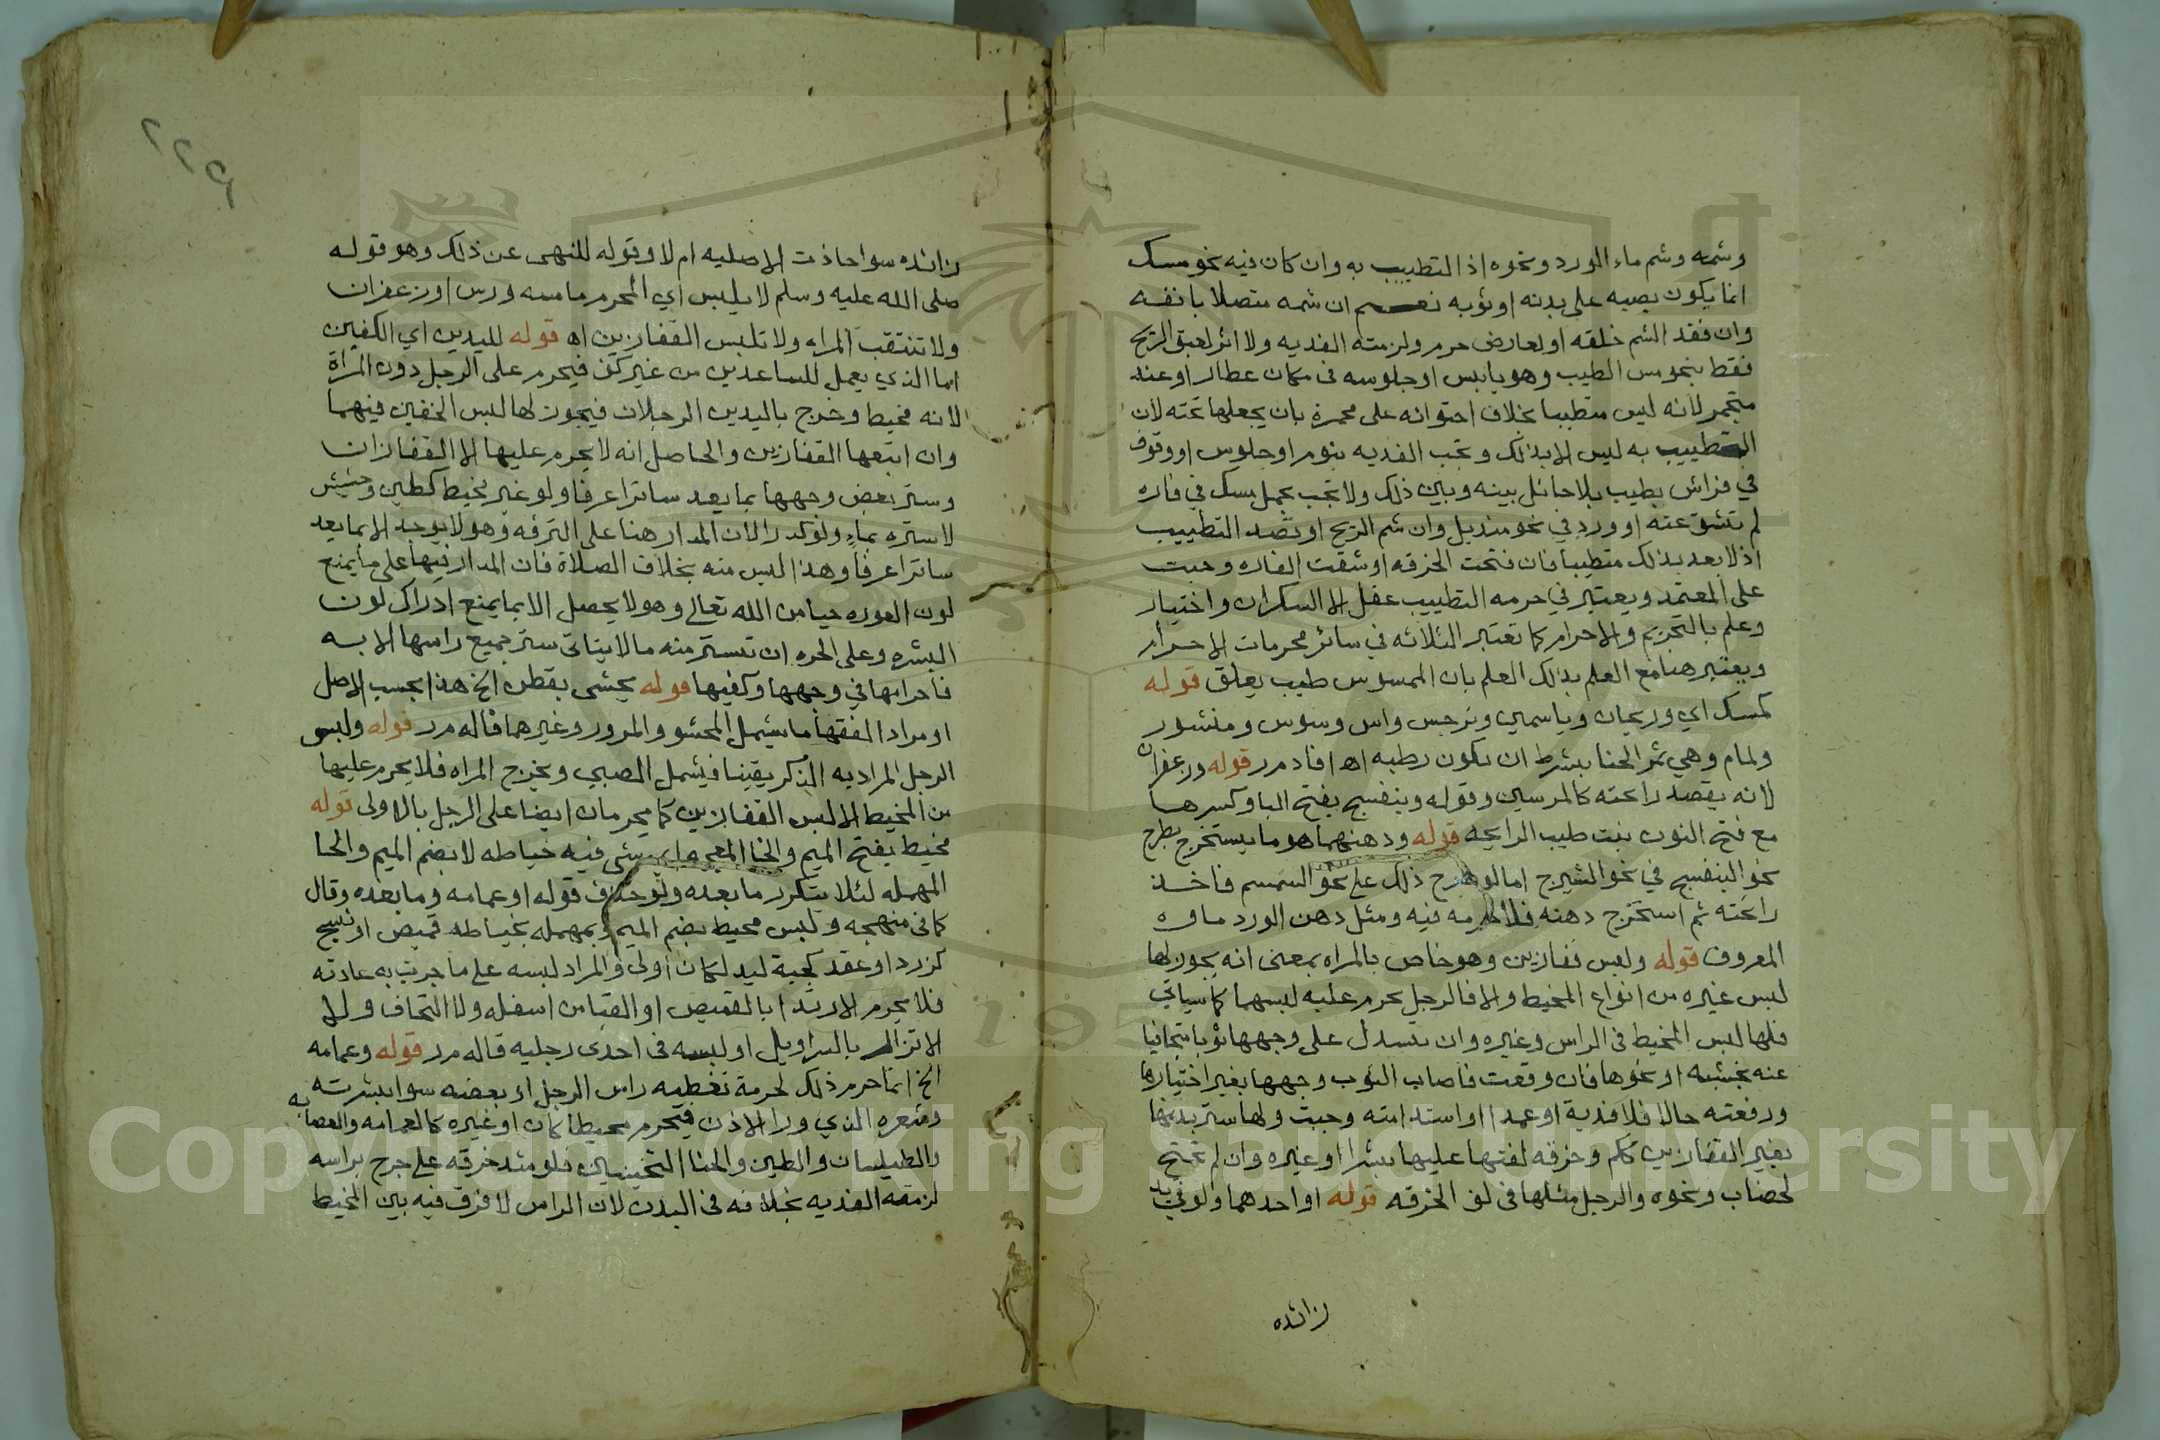 وشمه وشم ماء الورد ونحوه اذ التطييب به وان كان فيه نحو مسك
انما يكون بصبه على بدنه او ثوبه نعم ان شمه متصلا بانفه
وان فقد الشم خلقه او لعارض حرم ولزمته الفديه ولا اثر لعبق الريح
فقط بنحو مس الطيب وهو يابس او جلوسه فى مكان عطار او عند
متجمر لانه ليس متطيبا بخلاف احتوائه على مجمرة بان يجعلها تحته لان
التطييب به ليس الا بذلك وتجب الفديه بنوم او جلوس او وقوف
في فراش بطيب بلا حائل بينه وبين ذلك ولا تجب بحمل مسك في فاره
لم تشق عنه او ورد في نحو منديل وان شم الريح او قصد التطييب
اذ لا يعد بذلك متطيبا فان فتحت الخرقه او شقت الفاره وجبت
على المعتمد ويعتبر في حرمه التطييب عقل الا السكران واختيار
وعلم بالتحريم والاحرام كما تعتبر الثلاثه في سائر محرمات الاحرام
ويعتبر هنا مع العلم بذلك العلم بان الممسوس طيب يعلق قوله
كمسك اي وريحان وياسمين ونرجس واس وسوس ومنشور
ولمام وهي ثمر الحنا بشرط ان يكون رطبه اه افاد مر قوله وزعفران
لانه يقصد رائحته كالمرسين وقوله وبنفسج بفتح البا وكسرها
مع فتح النون نبت طيب الرايحه قوله ودهنهما هو ما يستخرج بطرح
نحو البنفسج في نحو الشيرج اما لو طرح ذلك على نحو السمسم فاخذ
رائحته ثم استخرج دهنه فلا حرمه فيه ومثل دهن الورد ماوه
المعروف قوله ولبس قفازين وهو خاص بالمراه بمعنى انه يجوز لها
لبس غيره من انواع المخيط والا فالرجل يحرم عليه لبسهما كما سياتي
فلها لبس المخيط فى الراس وغيره وان تسدل على وجهها ثوبا متجافيا
عنه بخشبه او نحوها فان وقعت فاصاب الثوب وجهها بغير اختيارها
ورفعته حالا فلا فدية او عمدا او استدامته وجبت ولها ستر يديها
بغير القفازين ككم وخرقه لفتها عليها بشرا او غيره وان لم تحتج
لخضاب ونحوه والرجل مثلها فى لف الخرقه قوله او احدهما ولو في يد
زائده
زائده سوا حاذت الاصليه ام لا وقوله للنهى عن ذلك وهو قوله
صلى الله عليه وسلم لا يلبس اي المحرم ما مسه ورس او زعفران
ولا تنتقب المراه ولا تلبس القفازين اه قوله لليدين اي الكفين
اما الذي يعمل للساعدين من غير كف فيحرم على الرجل دون المراة
لانه مخيط وخرج باليدين الرجلان فيجوز لها لبس الخفين فيهما
وان اتبعها القفازين والحاصل انه لا يحرم عليها الا القفازان
وستر بعض وجهها بما يعد ساترا عرفا ولو غير مخيط كطين وحشيش
لا ستره بماء ولو كدرا لان المدار هنا على الترفه وهو لا يوجد الا بما يعد
ساترا عرفا وهذا ليس منه بخلاف الصلاة فان المدار فيها على ما يمنع
لون العوره حيا من الله تعالى وهو لا يحصل الا بما يمنع ادراك لون
البشره وعلى الحره ان تستر منه ما لا يتاتى ستر جميع راسها الا به
فاحرامها في وجهها وكفيها قوله يحشى بقطن الخ هذا بحسب الاصل
او مراد الفقها ما يشمل المحشو والمزرور وغيرهما قاله مر قوله ولبس
الرجل المراد به الذكر يقينا فيشمل الصبي ويخرج المراه فلا يحرم عليها
من المخيط الا لبس القفازين كما يحرمان ايضا على الرجل بالاولى قوله
مخيط بفتح الميم والخا المعجمه اي شى فيه خياطه لا بضم الميم والحا
المهمله لئلا يتكرر ما بعده ولو حذف قوله او عمامه وما بعده وقال
كما فى منهجه ولبس محيط بضم الميم وبمهمله بخياطه قميص او نسج
كزرد او عقد كجبة لبد لكان اولى والمراد لبسه على ما جرت به عادته
فلا يحرم الارتدا بالقميص او القبا من اسفله ولا التحاف ولا
الاتزار بالسراويل او لبسه فى احدى رجليه قاله مر قوله وعمامه
الخ انما حرم ذلك لحرمة تغطيه راس الرجل او بعضه سوا بشرته
وشعره الذي ورا الاذن فيحرم محيطا كان او غيره كالعمامه والعصابه
والطيلسان والطين والحنا الثخينين فلو شد خرقه على جرح براسه
لزمته الفديه بخلافه فى البدن لان الراس لا فرق فيه بين المخيط